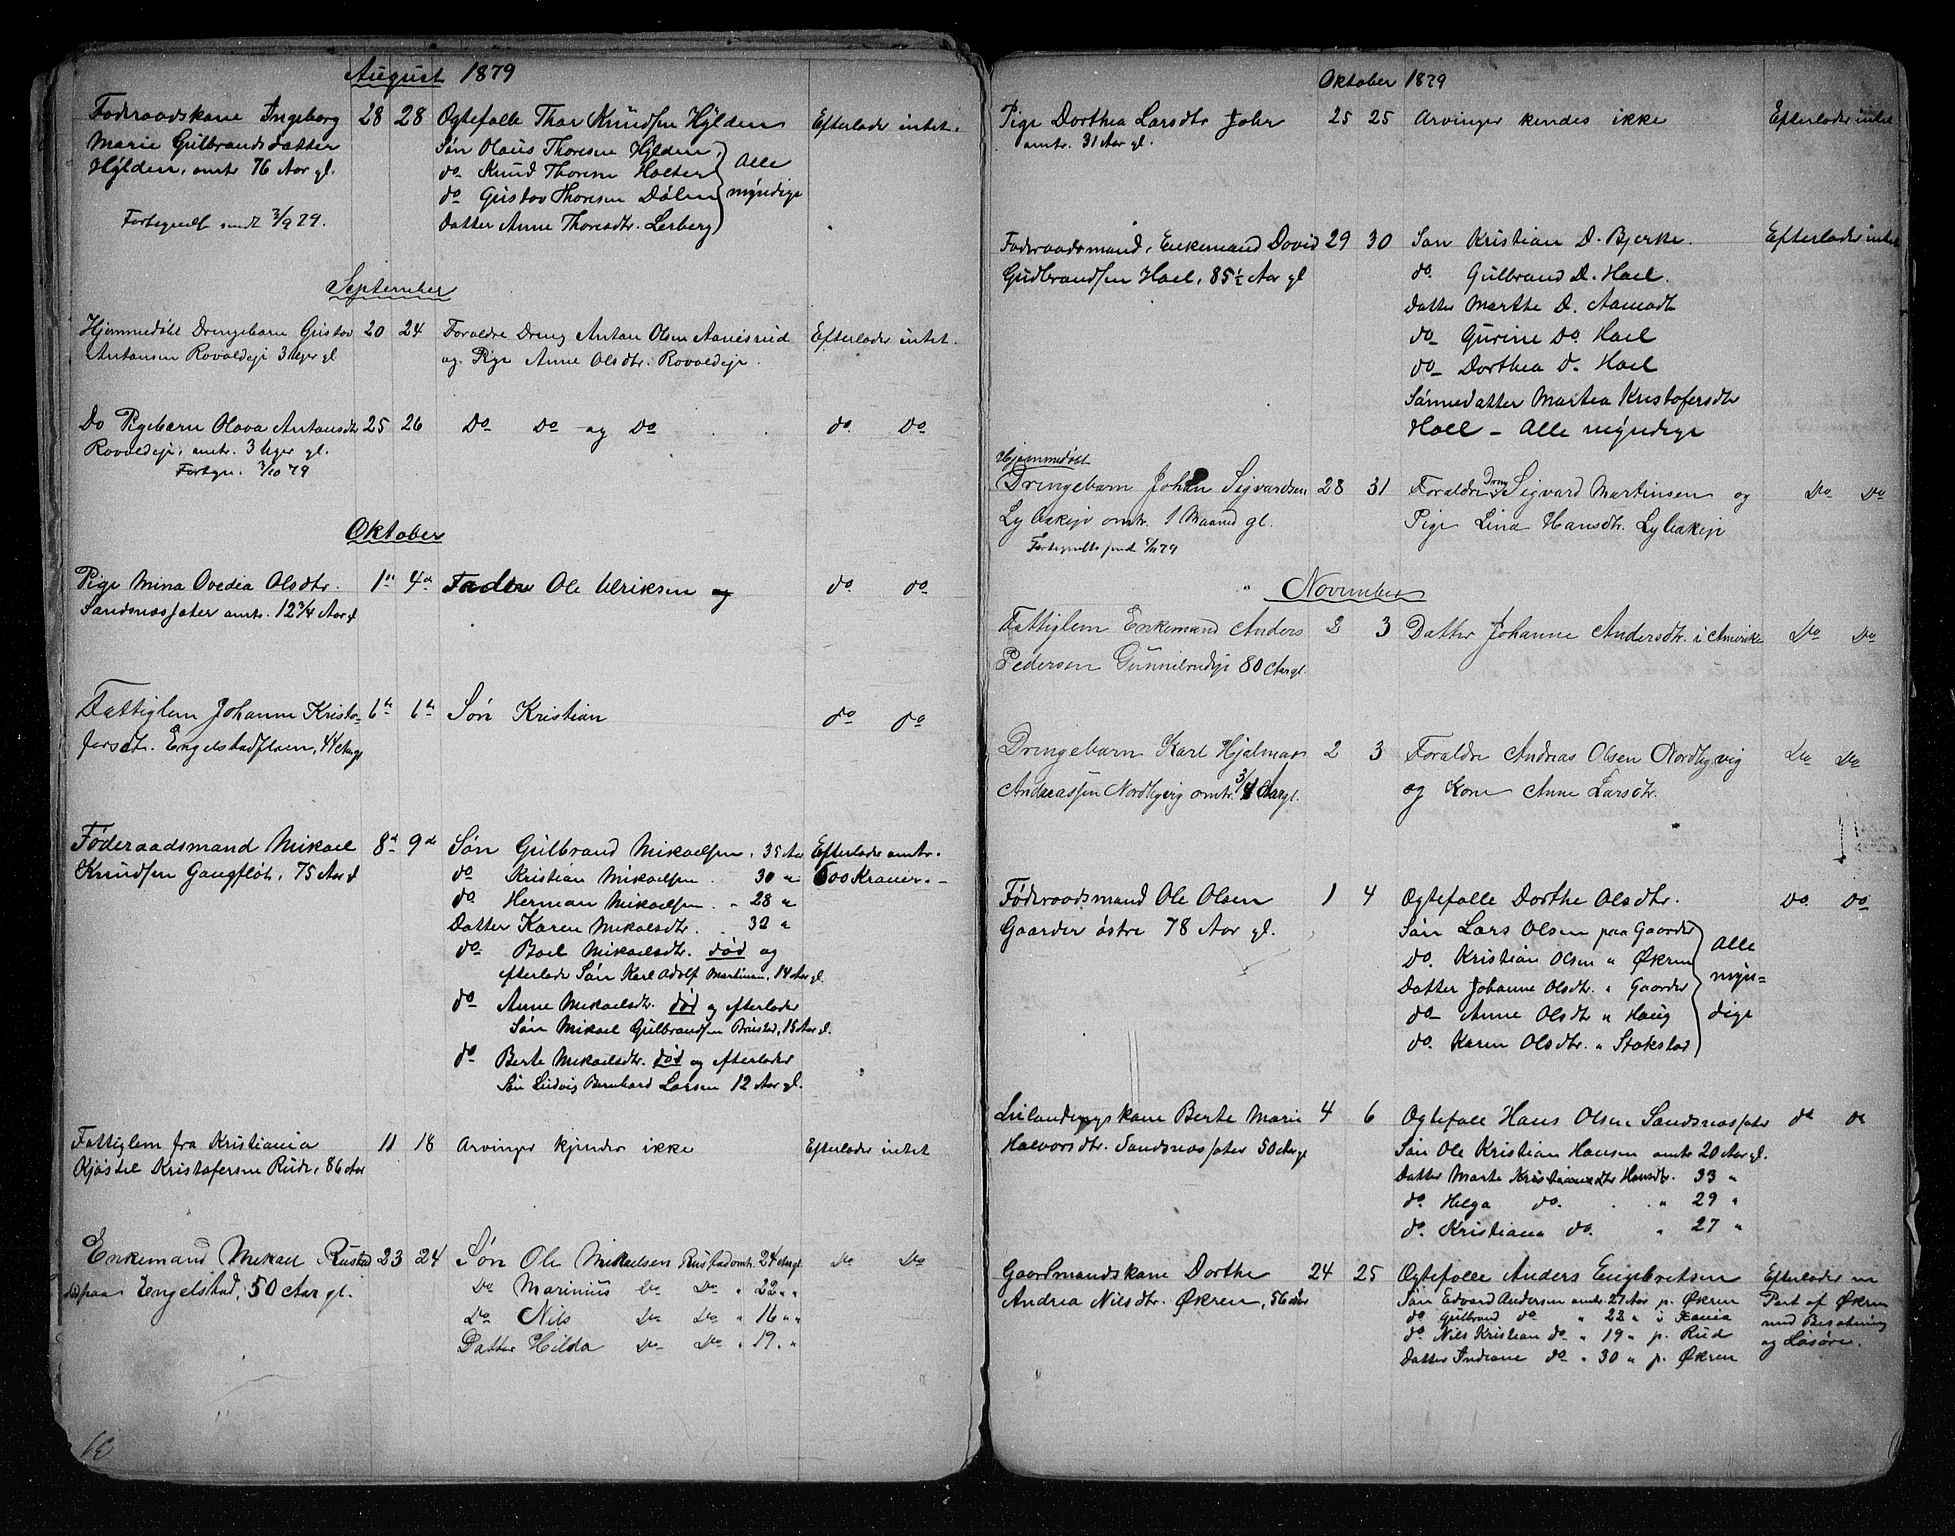 August 1879
Føderaadskone Ingeborg 28 28 Ogtefolle Thor Knudsen Hylden Efterlader intet.
Marie Gulbrandsdatter Søn Olaus Thoresen Hylden
Hylden, omtr 76 Aar gl. do Knud Thoresen Holter Alle
do Gustav Thoresen Dølen myndige
Fortegnelse sendt 3/9 79. Datter Anne Thoresdtr. Lerberg
September
Hjemmedøbt Drengebarn Gustav 20 24 Foraldre Dreng Antan Olsen Aanesrud Efterlader intet.
Antansen Rovoldeje 3 Uger gl og Pige Anne Olsdtr. Rovoldeje.
Do Pigebarn Olava Antonsdtr 25 26 Do Do og Do do. Do
Rovoldeje, omtr. 3 Uger gl.
Fortegn. 3/10 79
Oktober
Pige Mina Ovedia Olsdtr. 1ste 4de Fader Ole Ulriksen og do do
Sandsnossater omtr. 12 3/4 Aar gl
Fattiglem Johanne Kristo- 6te 6te Søn Kristian do do
fersdtr. Engelstadfloen, 44 Aar gl
Føderaadsmand Mikael 8de 9de Søn Gulbrand Mikaelsen, 35 Aar Efterlader omtr.
Knudsen Gangfløt, 75 Aar gl do Kristian Mikaelsen 30 " 600 Kroner.-
do. Herman Mikaelsen. " 28 "
Datter Karen Mikalsdtr. 32 "
do Boel Mikaelsdtr. død og
efterlader Søn Karl Adolf Martinsen, 14 Aar gl.
do Anne Mikaelsdtr. død og efterlader
Søn Mikael Gulbrandsen Brustad, 15 Aar gl.
do Berte Mikaelsdtr. død og efterlader
Søn Ludvig Bernhard Larsen 12 Aar gl.
Fattiglem fra Kristiania 11 18 Arvinger kjender ikke Efterlader intet
Kjøstel Kristofersen Rud, 86 Aar
Enkemand Mikael Rustad 23 24 Søn Ole Mikaelsen Rustad omtr. 24 Aar gl. Do Do
død paa Engelstad, 50 Aar gl. Do Marinius Do Do " 22 " "
Do Nils Do Do " 16 " "
Datter Hilda Do Do " 19. "
Oktober 1879
Pige Dorthea Larsdtr Johr 25 25 Arvinger kendes ikke Efterlader intet
omtr. 31 Aar gl.
Føderaadsmand, Enkemand David 29 30 Søn Kristian D. Bjerke. Efterlader intet
Gudbrandsen Hoel, 85 1/2 Aar gl do. Gulbrand D. Hoel.
Datter Marthe D. Aamodt
do Gurine Do Hoel
do Dorthea D. Hoel
Sønnedatter Martea Kristofersdtr
Hoel - Alle myndige
Hjemmedøbt
Drengebarn Johan Sigvardsen 28 31 Foraldre Dreng Sigvard Martinsen og Do Do
Lybakeje omtr. 1 Maaned gl. Pige Lina Hansdtr. Lybakeje
November
Fattiglem Enkemand Anders 2 3 Datter Johanne Andersdtr. i Amerika Do Do
Pedersen Gunnilrudeje 80 Aar gl.
Drengebarn Karl Hjalmar 2 3 Foraldre Andreas Olsen Nordbyvig Do Do
Andreassen Nordbyvig omtr. 3/4 Aar gl. og Kone Anne Larsdtr.
Føderaadsmand Ole Olsen 1 4 Ogtefolle Dorthe Olsdtr. Do. Do
Gaarder østre 78 Aar gl. Søn Lars Olsen paa Gaarder
Do. Kristian Olsen " Økren Alle
Datter Johanne Olsdtr. " Gaarder myn-
do Anne Olsdtr " Haug dige
do. Karen Olsdtr. " Stokstad
Leilendingskone Berte Marie 4 6 Ogtefolle Hans Olsen Sandsnossater do do
Halvorsdtr. Sandsnossater 50 Aar gl Søn Ole Kristian Hansen omtr 20 Aar gl.
Datter Marte Hansdtr. 33 "
do. Helga do. " 29 "
do. Kristiane do. " 27 "
Gaardmandskone Dorthe 24 25 Ogtefolle Anders Engebretsen Efterlader en
Andrea Nilsdtr. Økren, 56 Aar Søn Edvard Andersen omtr. 27 Aar p. Økren Part af Økren
do Gulbrand do " 22 " i Xania med Besætning
do. Nils Kristian do " 19 " p. Rud og Løsøre.
Datter Indiane do " 30 " p. Økren